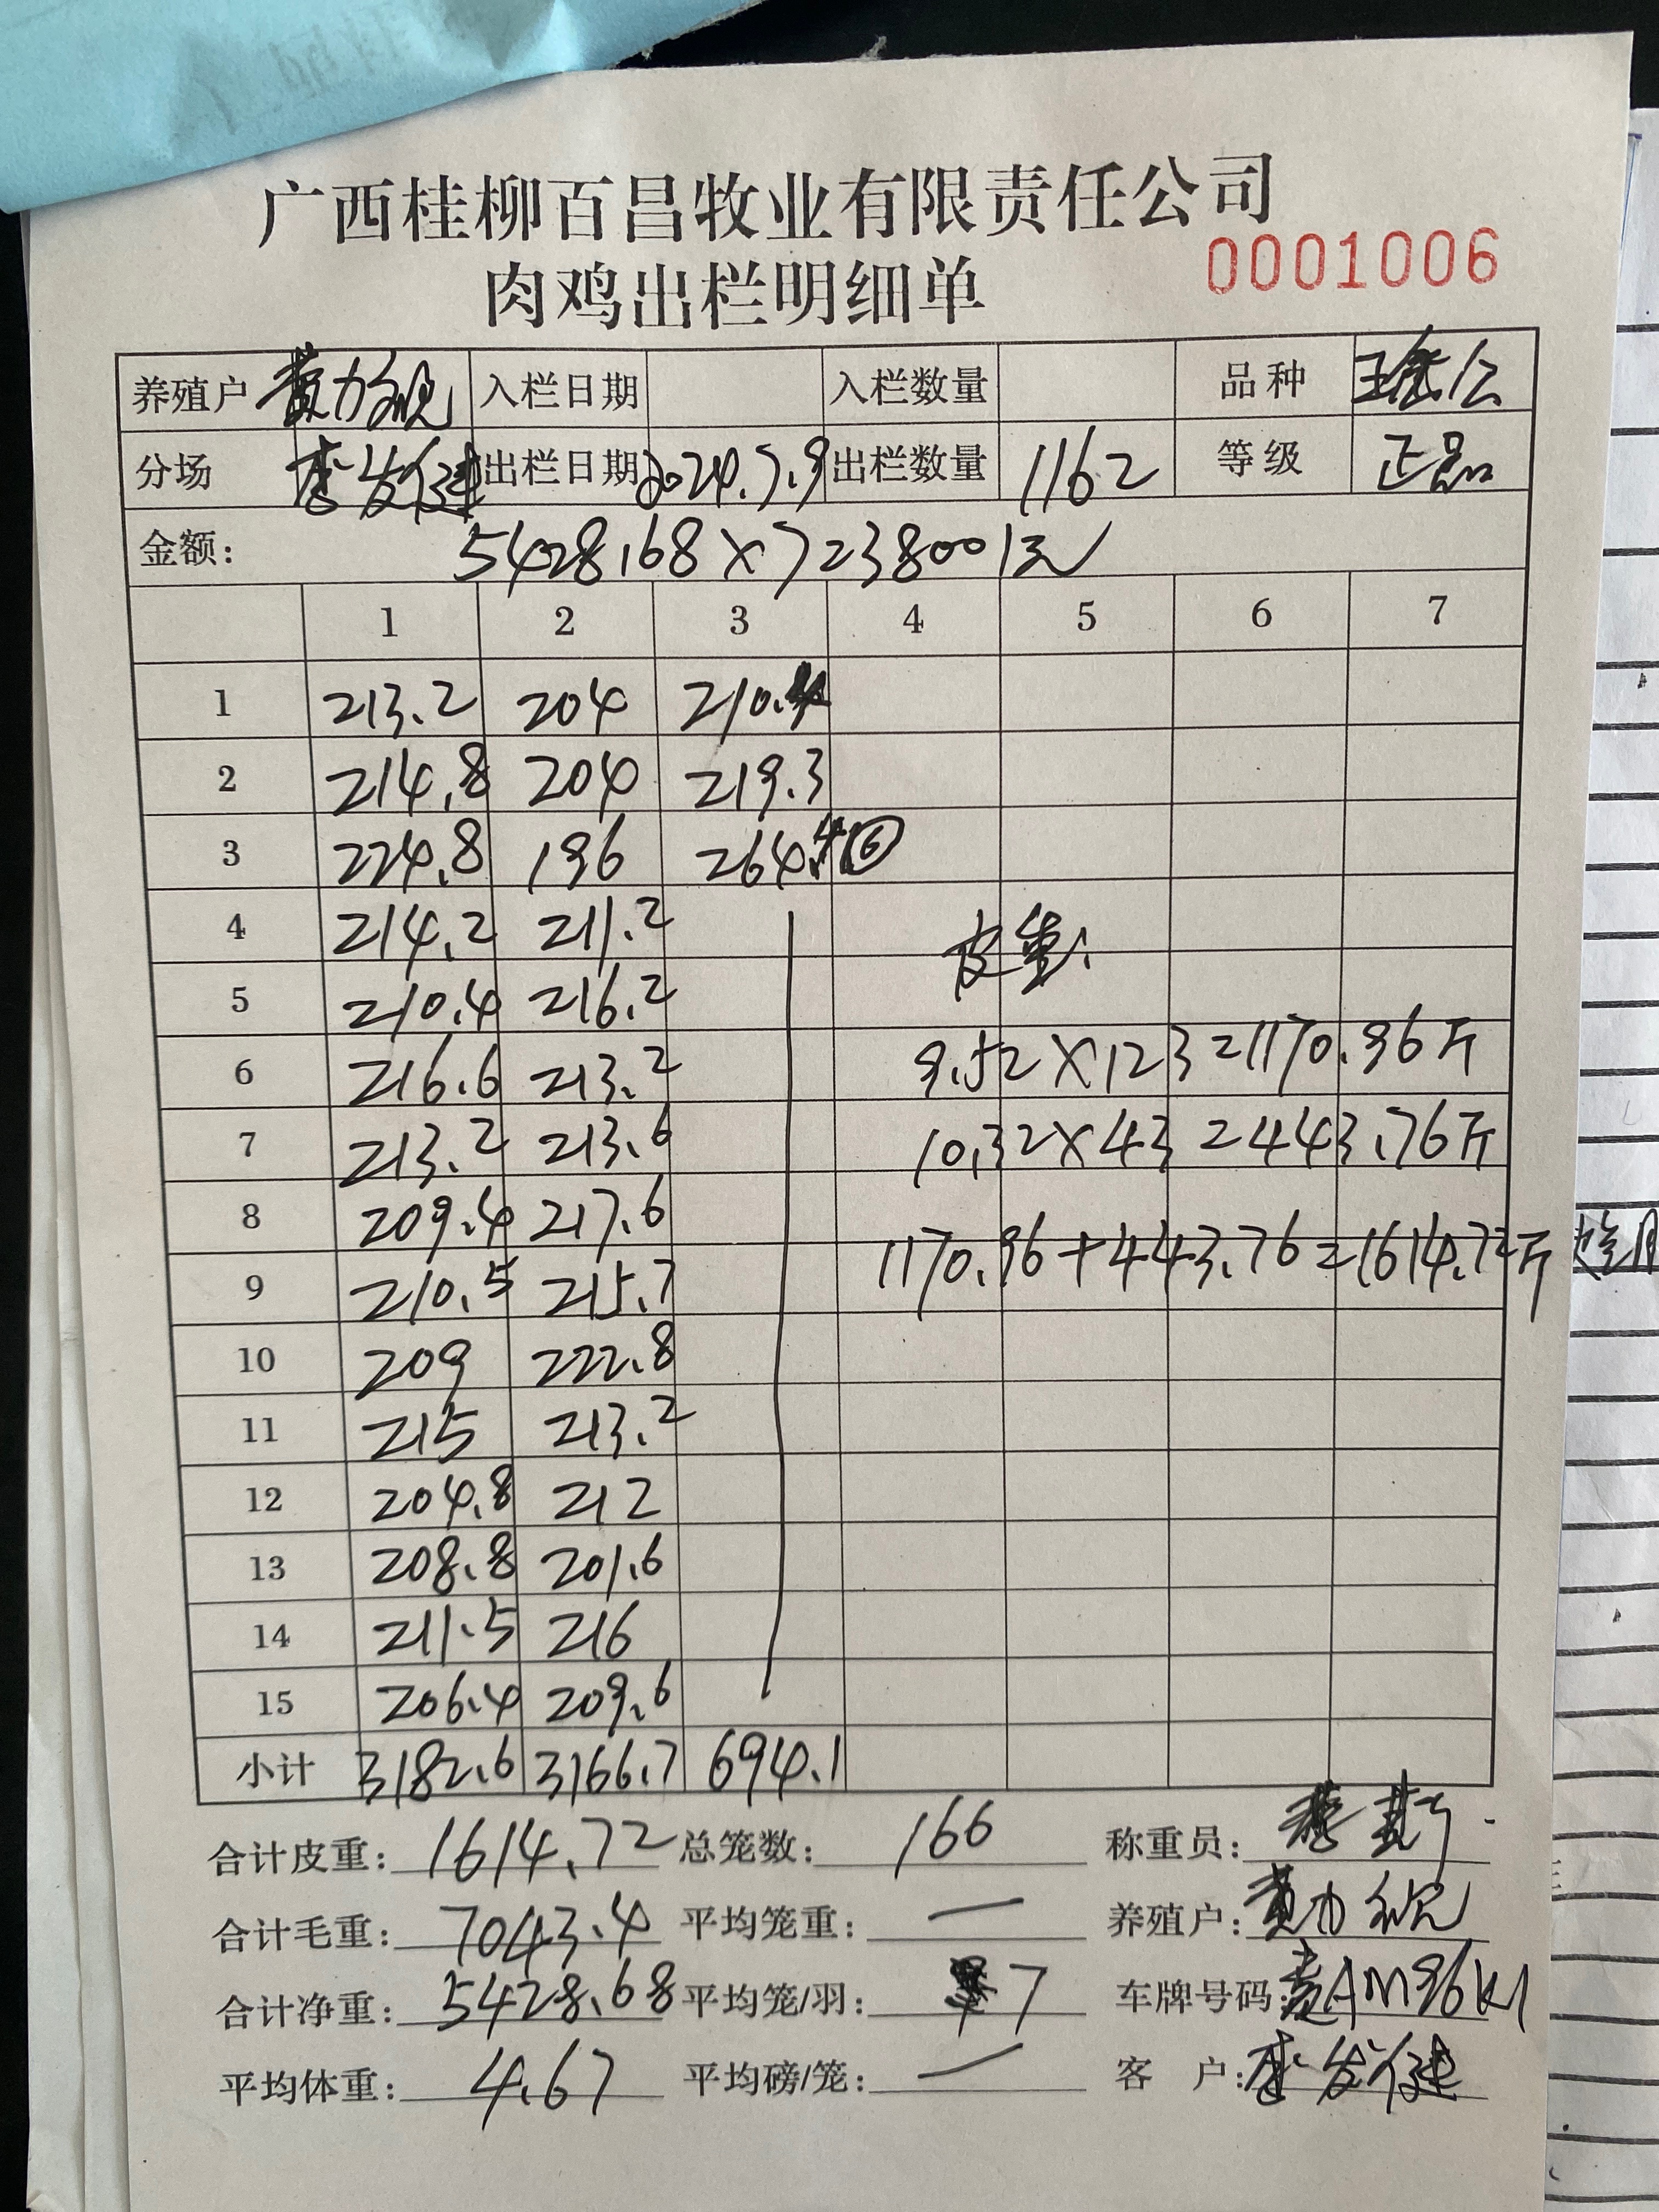 广西桂柳百昌牧业有限责任公司
0001006
肉鸡出栏明细单
养殖户 黄力 入栏日期 入栏数量 品种
分场 李发健 出栏日期 2024.7.9 出栏数量 1162 等级 正品
金额: 5428.68×7=38001元
1 2 3 4 5 6 7
1 213.2 204 210.4
2 214.8 204 219.3
3 224.8 196 264.4 ⑥
4 214.2 211.2
皮重:
5 210.4 216.2
6 216.6 213.2 9.52×123=1170.96斤
7 213.2 213.6 10.32×43=443.76斤
8 209.4 217.6
9 210.5 215.7 1170.96+443.76=1614.72斤
10 209 222.8
11 215 213.2
12 204.8 212
13 208.8 201.6
14 211.5 216
15 206.4 209.6
小计 3182.6 3166.7 694.1
合计皮重: 1614.72 总笼数: 166 称重员:
合计毛重: 7043.4 平均笼重: — 养殖户: 黄力
合计净重: 5428.68 平均笼/羽: 7 车牌号码: AM96K1
平均体重: 4.67 平均磅/笼: — 客 户: 李发健